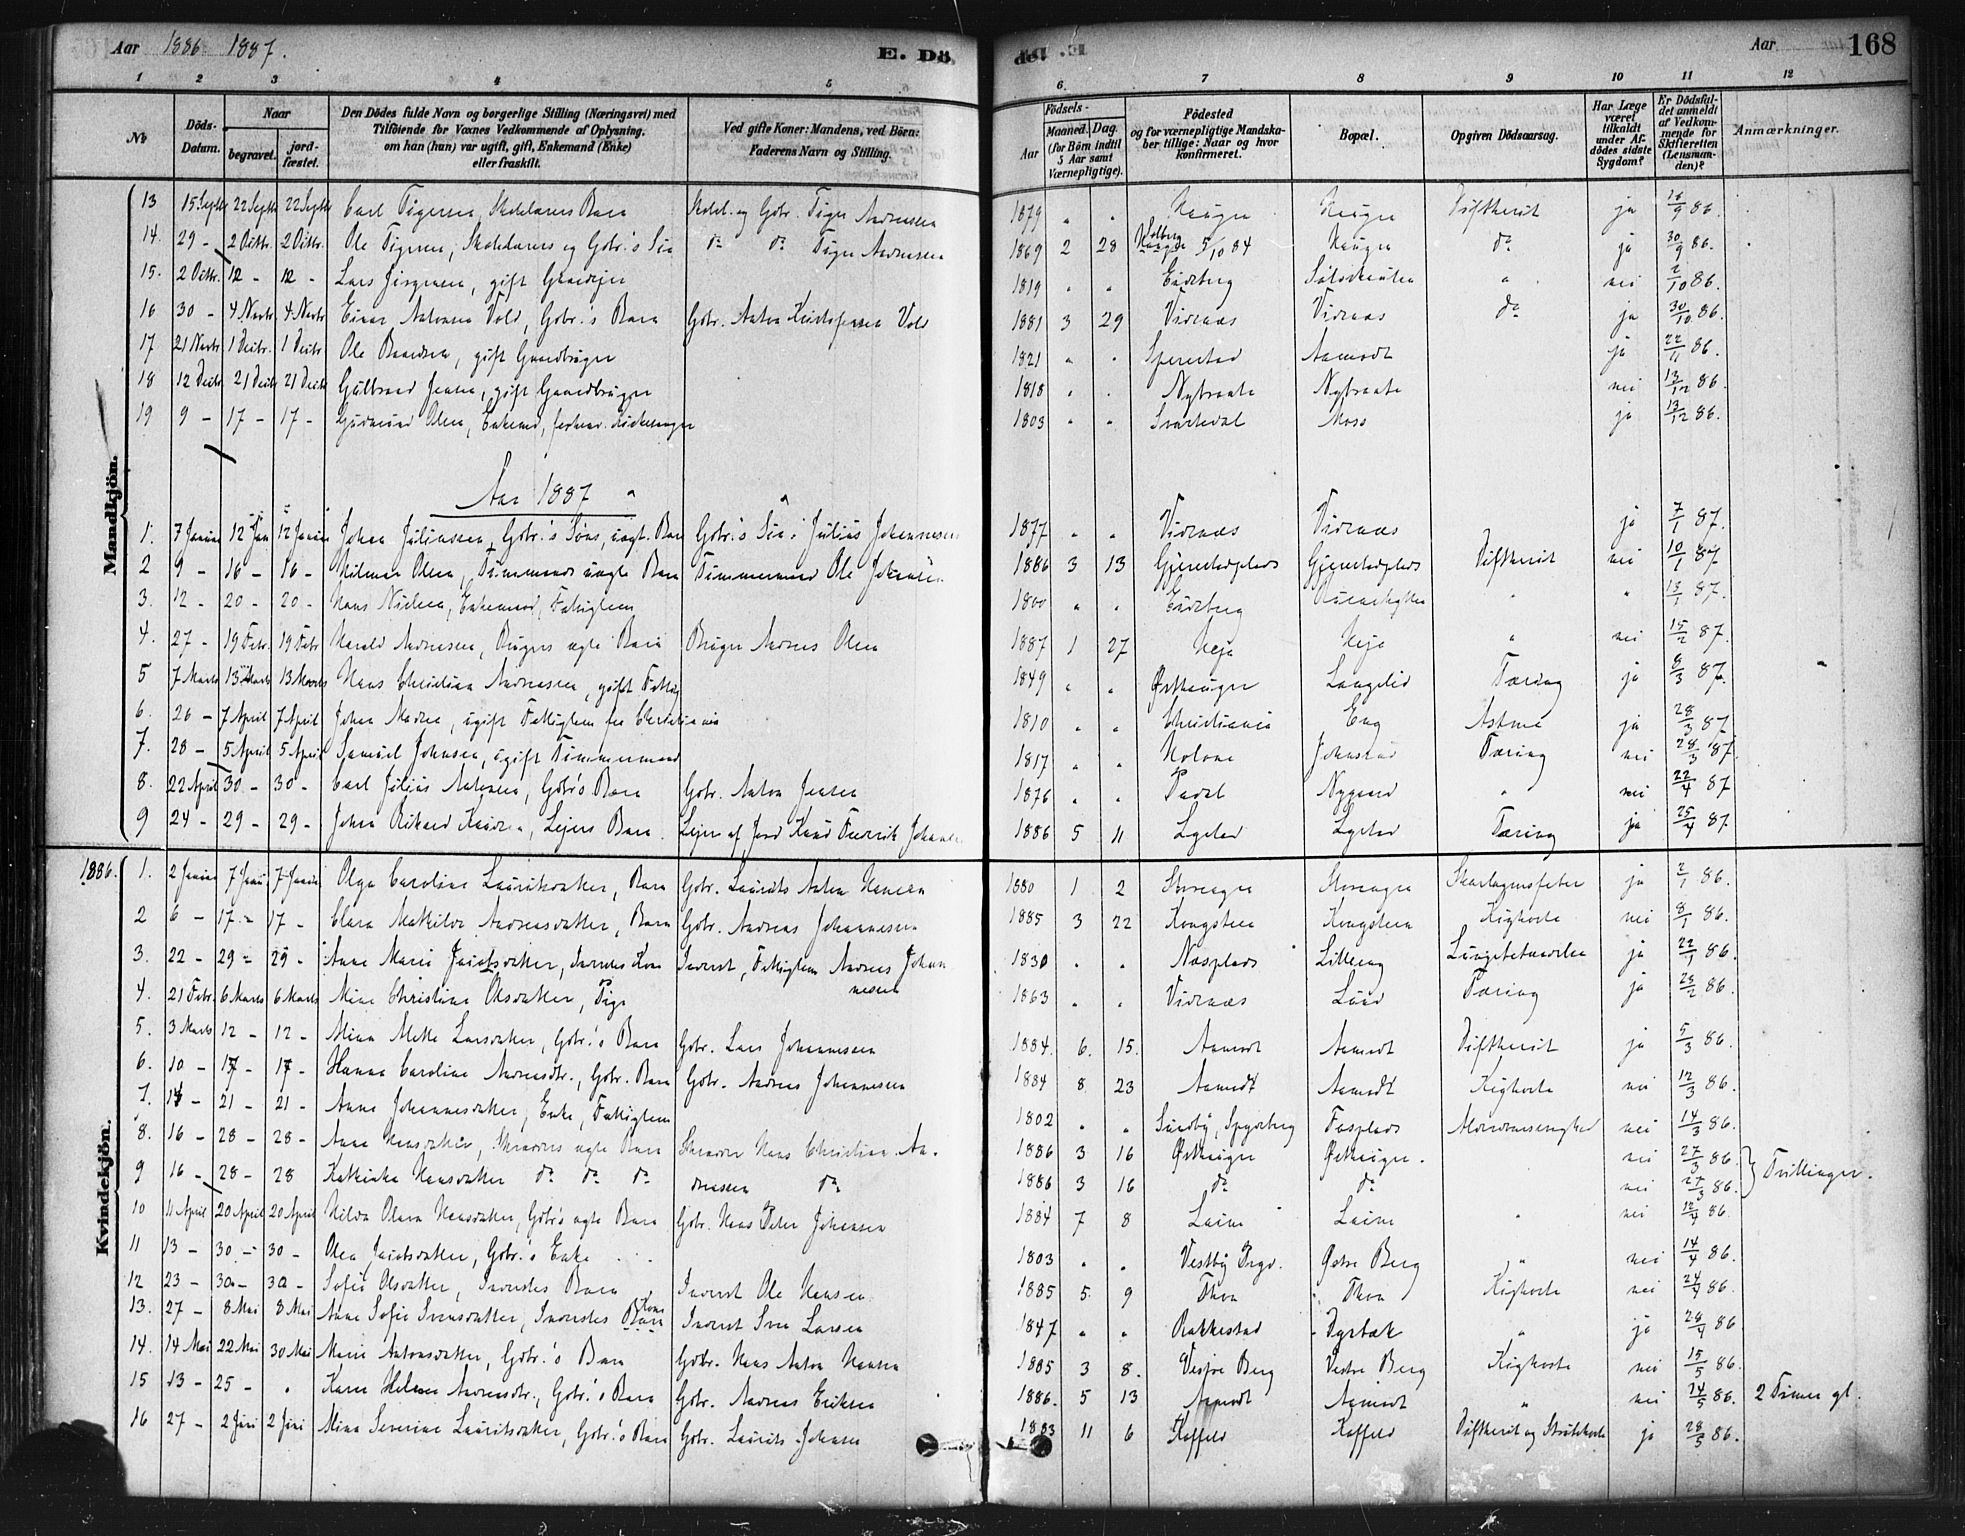 Aar 1886 1887.
E. Dö
Aar 168
1 2 3 4 5 6. 7 8 9 10 11 12
No
Döds-Datum.
Naar
begravet.
jordfæstet.
Den Dödes fulde Navn og borgerlige Stilling (Næringsvei) med
Tilföiende for Voxnes Vedkommende af Oplysning,
om han (hun) var ugift, gift, Enkemand (Enke)
eller fraskilt.
Ved gifte Koner: Mandens, ved Börn:
Faderens Navn og Stilling.
Födsels-
Aar
Maaned. Dag.
(for Börn indtil
5 Aar samt
Værnepligtige).
Födested
og for værnepligtige Mandskaber tillige: Naar og hvor
konfirmeret.
Bopæl.
Opgiven Dödsaarsag.
Har Læge
været
tilkaldt
under Afdödes sidste
Sygdom?
Er Dödsfaldet anmeldt
af Vedkommende for
Skifteretten
(Lensmanden)?
Anmærkninger.
Mandkjön.
13 15 Septbr 22 Septbr 22 Septbr Carl Tigersen, Skolelærers Barn Skolel. og Gbr. Tiger Andreassen 1879 " " Haugen Haugen Diftherit ja 16/9 86.
14. 29 - 2 Octbr. 2 Octbr. Ole Tigersen, Skolelærers og Gbr.'s Søn do do Tiger Andreassen 1869 2 28 5/10 84 Haugen do ja 30/9 86.
15. 2 Octbr. 12 - 12 - Lars Jørgensen, gift 1819 " " Eidsberg " nei 2/10 86.
16 30 - 4 Novbr 4 Novbr Einar Antonsen Vold, Gbr.'s Barn Gbr. Anton Kristofersen Vold 1881 3 29 Vidnæs Vidnæs do ja 30/10 86.
17 21 Novbr 1 Decbr. 1 Decbr Ole gift Gaardbruger 1821 " " Sperrestad Aamodt ja 22/11 86.
18 12 Decbr 21 Decbr 21 Decbr Gulbrand Jensen, gift Gaardbruger 1818 " " Nybraate Nybraate nei 13/12 86.
19 9 - 17 - 17 - Gudmund Olsen, Enkemd, forhenv. Kirkesanger 1803 " " Svartedal Moss ja 13/12 86.
Aar 1887
1. 7 Januar 12 Jan 12 Januar Johan Juliussen, Gbr.'s Søns, uægt. Barn Gbr.'s Søn: Julius Johannesen 1877 " " Vidnæs Vidnæs ja 7/1 87.
2 9 - 16 - 16 - Hilmar Olsen, Tømmermands ægte Barn Tømmermand Ole Johansen 1886 3 13 Gjerestadplads Gjerestadplads Diftherit nei 10/1 87
3. 12 - 20 - 20 - Hans Nielsen, Enkemand, Fattiglem 1800 " " Eidsberg " " 13/1 87.
4. 27 - 19 Febr. 19 Febr Harald Andreassen, Brugers ægte Barn Bruger Andreas Olsen 1887 1 27 Heja Heja " nei 15/2 87.
5 7 Marts 13 Marts 13 Marts Hans Christian Andreassen, gift Fattigl. 1849 " " Østhaugen Langelid Tæring ja 8/3 87.
6. 26 - 7 April 7 April Johan Madsen, ugift Fattiglem fra Christiania 1810 " " Christiania Eng Astma ja 28/3 87
7. 28 - 5 April 5 April Samuel Johnsen, ugift Tømmermand 1817 " " Holone Johnsrud Tæring nei 28/3 87.
8. 22 April 30 - 30 - Carl Julius Antonsen, Gbr's Barn Gbr. Anton Jensen 1876 " " Nygaard " nei 22/4 87
9 24 - 29 - 29 - Johan Rikard Knudsen, Lejers Barn. Lejer af Jord Knud Fredrik Johanne 1886 5 11 Lystad Lystad Tæring ja 25/4 87
Kvindekjön.
1886. 1. 2 Januar 7 Janu. 7 Januar Olga Caroline Lauritsdatter, Barn Gbr. Laurits Anton Hansen 1880 1 2 Storengen Storengen Skarlagensfeber ja 2/1 86.
2 6 - 17 - 17 - Clara Mathilde Andreasdatter, Barn Gbr. Andreas Johannesen 1885 3 22 Kongsteen Kongsteen Kighoste nei 8/1 86.
3. 22 - 29 - 29 - Anne Marie Jacobsdatter, Inderstes Kone Inderst, Fattiglem Andreas Johannessen 1830 " " Næsplads Lilleng Lungebetændelse ja 22/1 86.
4. 21 Febr. 6 Marts 6 Marts Mina Christine Olsdatter, Pige 1863 " " Vidnæs Lund Tæring ja 23/2 86.
5. 3 Marts 12 - 12 - Mina Mathe Larsdatter, Gbr.'s Barn Gbr. Lars Johannesen 1884. 6. 15. Aamodt Aamodt Diftherit ja 5/3 86.
6. 10 - 17 - 17 - Hanna Caroline Andreasdtr., Gbr. Barn Gbr. Andreas Johannesen 1884 8 23 Aamodt Aamodt Kighoste nei 12/3 86.
7. 14 - 21 - 21 - Anne Johannesdatter, Enke, Fattiglem 1802 " " Sundby, Spydeberg Fosplads Alderdomssvaghed nei 14/3 86.
8. 16 - 28 - 28 - Anna Hansdatter, Skræders ægte Barn Skræder Hans Christian An- 1886 3 16 Østhaugen Østhaugen. nei 27/3 86.
9 16 - 28 - 28 Kathinka Hansdatter do do do dreassen do 1886 3 16 do do nei 27/3 86. } Tvillinger.
10 11 April 20 April 20 April Hilda Olava Hansdatter, Gbr's ægte Barn Gbr. Hans Peter Johansen 1884 7 8 Laim Laim " nei 12/4 86.
11 13 - 30 - 30 - Olea Jacobsdatter, Gbr.'s Enke 1803 " " Vestby Prgd. Østre Berg " nei 14/4 86.
12 23 - 30 - 30 - Sofie Olsdatter, Inderstes Barn Inderst Ole Hansen 1885 5. 9 Thon Thon Kighoste nei 24/4 86.
13. 27 - 8 Mai 8 Mai Anne Sofie Svensdatter, Inderstes Barn Kone Inderst Sven Larsen 1847 " " Rakkestad Dyrbæk " ja 28/4 86.
14. 14 Mai 22 Mai 30 Mai Marie Antonsdatter, Gbr.'s Barn Gbr. Hans Anton Hansen 1885 3 8. Vestre Berg Vestre Berg Kighoste nei 15/5 86.
15 13 - 25 - " Karen Helene Andreasdtr., Gbr.'s Barn Gbr. Andreas Eriksen 1886. 5 13 Aamodt Aamodt " nei 14/5 86. 2 Timer gl.
16 27 - 2 Juni 2 Juni Mina Severine Lauritsdatter, Gbr.'s Barn Gbr. Laurits Johnsen 1883 11 6 Koffeld Koffeld Difterit og Strubehoste ja 28/5 86.